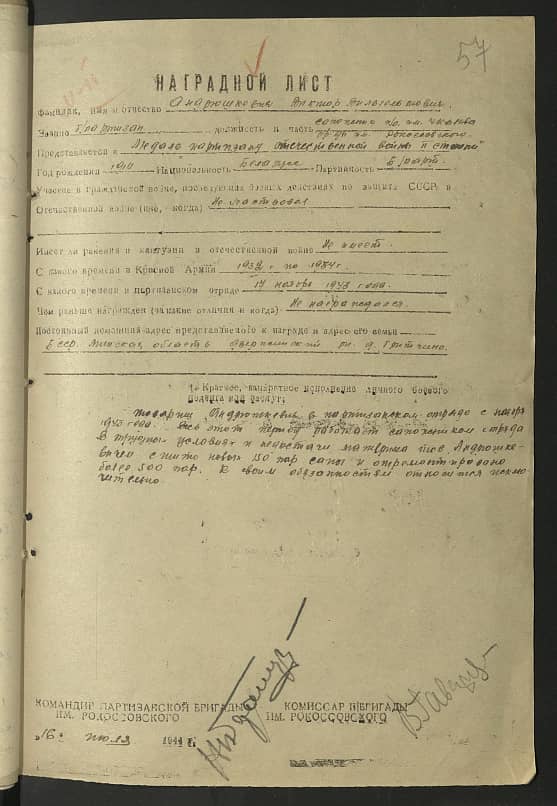 57
НАГРАДНОЙ ЛИСТ
Фамилия, имя и отчество Андрюшкевич Виктор
Звание Партизан должность и часть сапожник п/о им. Чкалова
бр-ды им. Рокоссовского
Представляется к Медаль партизану отечественной войны II степени
Год рождения 1910 Национальность Беларус Партийность Б/парт.
Участие в гражданской войне, последующих боевых действиях по защите СССР и
Отечественной войне (где, когда) Не участвовал
Имеет ли ранения и контузии в отечественной войне Не имеет.
С какого времени в Красной Армии 1932 г по 1934 г.
С какого времени в партизанском отряде 17 ноября 1943 года.
Чем раньше награжден (за какие отличия и когда) Не награждался.
Постоянный домашний адрес представляемого к награде и адрес его семьи
БССР. Минская область Дзержинский р-н. д. Гритчино.
1. Краткое, конкретное изложение личного боевого
подвига или заслуг:
Товарищ Андрюшкевич в партизанском отряде с ноября
1943 года. Весь этот период работает сапожником отряда
В трудных условиях и недостачи материала тов Андрюшке-
вичем сшито новых 150 пар сапог и отремонтировано
более 500 пар. К своим обязанностям относится исклю-
чительно.
КОМАНДИР ПАРТИЗАНСКОЙ БРИГАДЫ
ИМ. РОКОССОВСКОГО
КОМИССАР БРИГАДЫ
ИМ. РОКОССОВСКОГО
16 июля 1944 г.